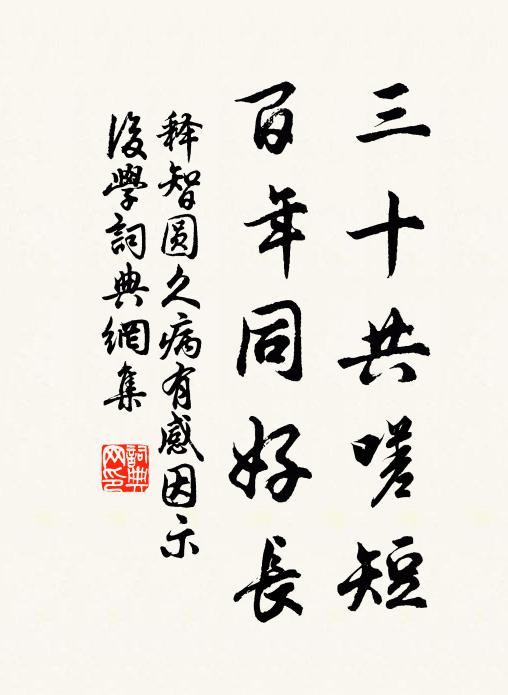 三十共嗟短
百年同好長
释智圆久病有感因示
後學詞典網集
詞典网印